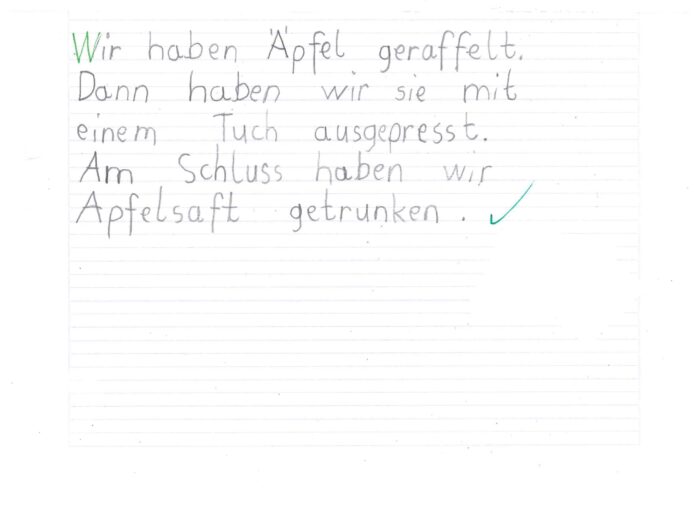 Wir haben Äpfel geraffelt.
Dann haben wir sie mit
einem Tuch ausgepresst.
Am Schluss haben wir
Apfelsaft getrunken.